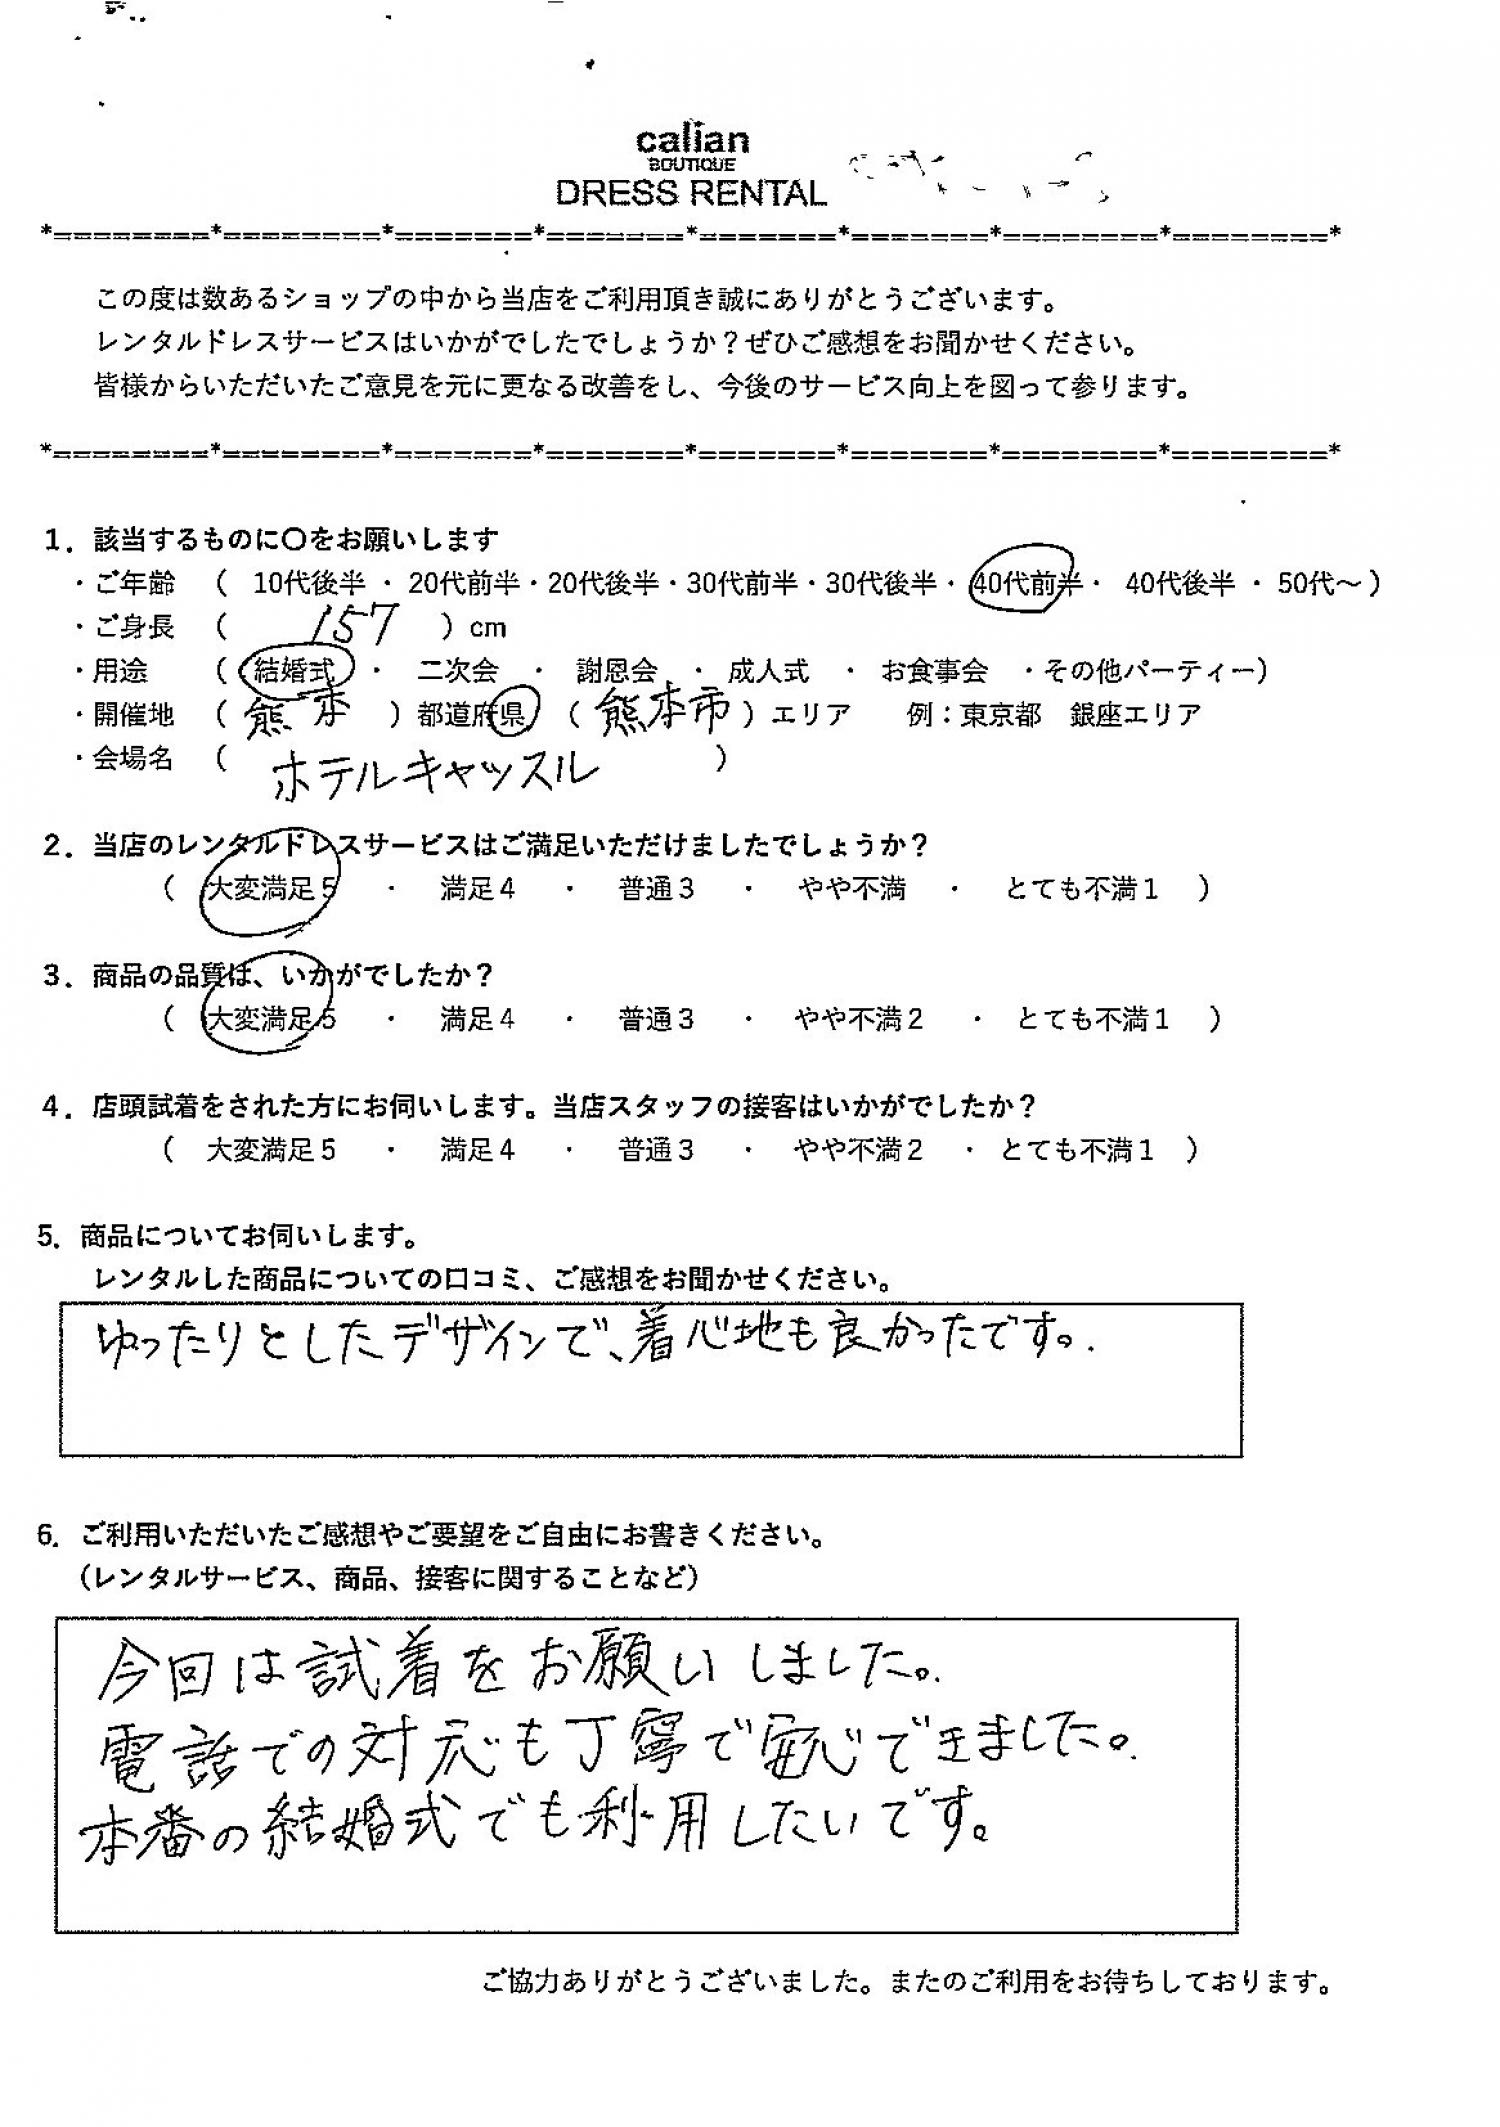 calian
BOUTIQUE
DRESS RENTAL
*========*========*=======*=======*=======*=======*========*========*
この度は数あるショップの中から当店をご利用頂き誠にありがとうございます。
レンタルドレスサービスはいかがでしたでしょうか？ぜひご感想をお聞かせください。
皆様からいただいたご意見を元に更なる改善をし、今後のサービス向上を図って参ります。
*========*========*=======*=======*=======*=======*========*========*
1．該当するものに〇をお願いします
・ご年齢 （ 10代後半 ・ 20代前半・20代後半・30代前半・30代後半・ 40代前半・ 40代後半 ・ 50代～）
・ご身長 （ 157 ）cm
・用途 （ 結婚式 ・ 二次会 ・ 謝恩会 ・ 成人式 ・ お食事会 ・その他パーティー）
・開催地 （ 熊本 ）都道府県 （ 熊本市 ）エリア 例：東京都 銀座エリア
・会場名 （ ホテルキャッスル ）
2．当店のレンタルドレスサービスはご満足いただけましたでしょうか？
（ 大変満足5 ・ 満足4 ・ 普通3 ・ やや不満 ・ とても不満1 ）
3．商品の品質は、いかがでしたか？
（ 大変満足5 ・ 満足4 ・ 普通3 ・ やや不満2 ・ とても不満1 ）
4．店頭試着をされた方にお伺いします。当店スタッフの接客はいかがでしたか？
（ 大変満足5 ・ 満足4 ・ 普通3 ・ やや不満2 ・ とても不満1 ）
5．商品についてお伺いします。
レンタルした商品についての口コミ、ご感想をお聞かせください。
ゆったりとしたデザインで、着心地も良かったです。
6．ご利用いただいたご感想やご要望をご自由にお書きください。
（レンタルサービス、商品、接客に関することなど）
今回は試着をお願いしました。
電話での対応も丁寧で安心できました。
本番の結婚式でも利用したいです。
ご協力ありがとうございました。またのご利用をお待ちしております。